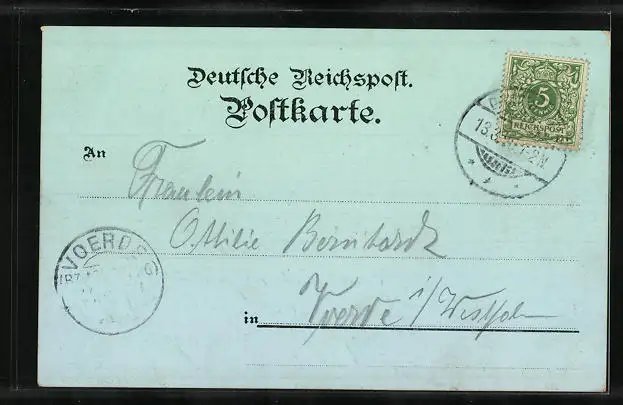 Deutsche Reichspost.
Postkarte.
5
REICHSPOST
13.3
1-2N.
An
Fräulein
Ottilie Bernhardt
VOERDE
in Voerde i/Westfalen